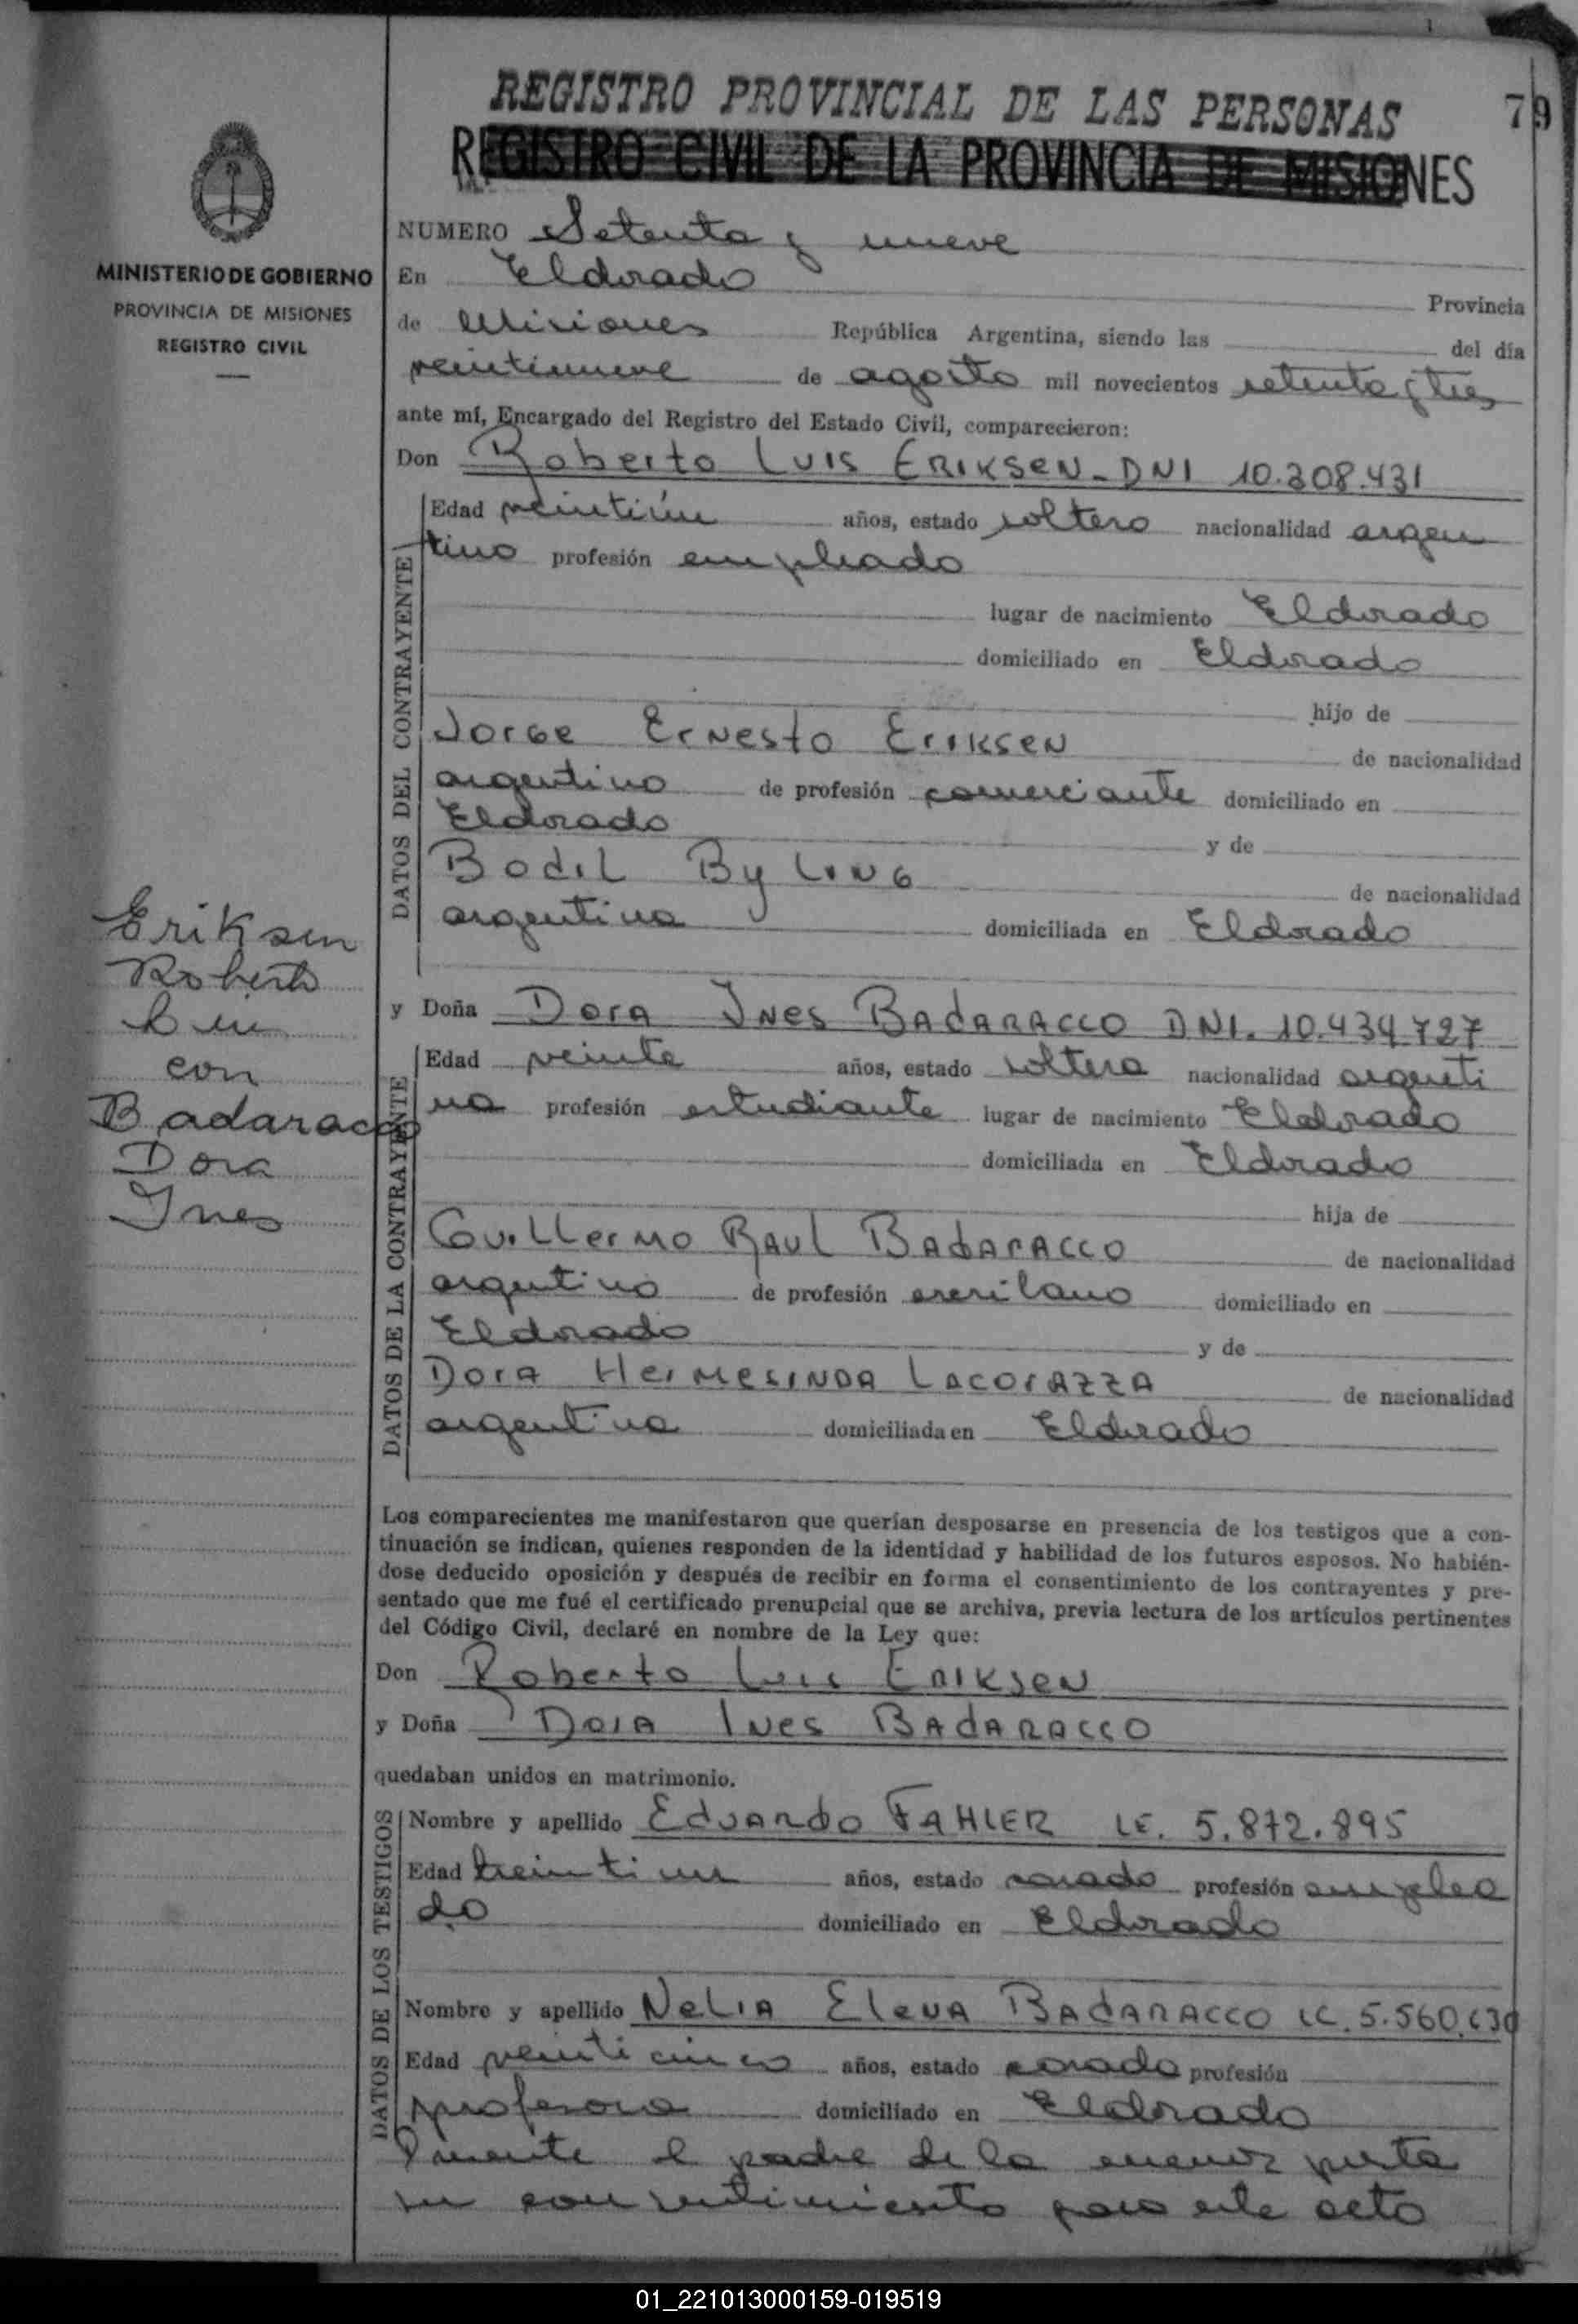 REGISTRO PROVINCIAL DE LAS PERSONAS
79
REGISTRO CIVIL DE LA PROVINCIA DE MISIONES
MINISTERIO DE GOBIERNO
PROVINCIA DE MISIONES
REGISTRO CIVIL
NUMERO Setenta y nueve
En Eldorado Provincia
de Misiones República Argentina, siendo las del día
veintinueve de agosto mil novecientos setenta y tres
ante mí, Encargado del Registro del Estado Civil, comparecieron:
Don Roberto Luis ERIKSEN - DNI 10.308.431
DATOS DEL CONTRAYENTE
Edad veintiún años, estado soltero nacionalidad argen
tino profesión empleado
lugar de nacimiento Eldorado
domiciliado en Eldorado
hijo de
Jorge Ernesto Eriksen de nacionalidad
argentino de profesión comerciante domiciliado en
Eldorado y de
Bodil By Ling de nacionalidad
argentina domiciliada en Eldorado
Eriksen
Roberto
Luis
con
Badaracco
Dora
Ines
y Doña Dora Ines BADARACCO DNI. 10.434.727
DATOS DE LA CONTRAYENTE
Edad veinte años, estado soltera nacionalidad argenti
na profesión estudiante lugar de nacimiento Eldorado
domiciliada en Eldorado
hija de
Guillermo Raul BADARACCO de nacionalidad
argentino de profesión escribano domiciliado en
Eldorado y de
Dora Hermesinda LACORAZZA de nacionalidad
argentina domiciliada en Eldorado
Los comparecientes me manifestaron que querían desposarse en presencia de los testigos que a con-
tinuación se indican, quienes responden de la identidad y habilidad de los futuros esposos. No habién-
dose deducido oposición y después de recibir en forma el consentimiento de los contrayentes y pre-
sentado que me fué el certificado prenupcial que se archiva, previa lectura de los artículos pertinentes
del Código Civil, declaré en nombre de la Ley que:
Don Roberto Luis ERIKSEN
y Doña Dora Ines BADARACCO
quedaban unidos en matrimonio.
DATOS DE LOS TESTIGOS
Nombre y apellido Eduardo FAHLER LE. 5.872.895
Edad treintiun años, estado casado profesión emplea
do domiciliado en Eldorado
Nombre y apellido Nelia Elena BADARACCO LC. 5.560.630
Edad veinticinco años, estado casada profesión
profesora domiciliado en Eldorado
Presente el padre de la menor presta
su consentimiento para este acto
01_221013000159-019519